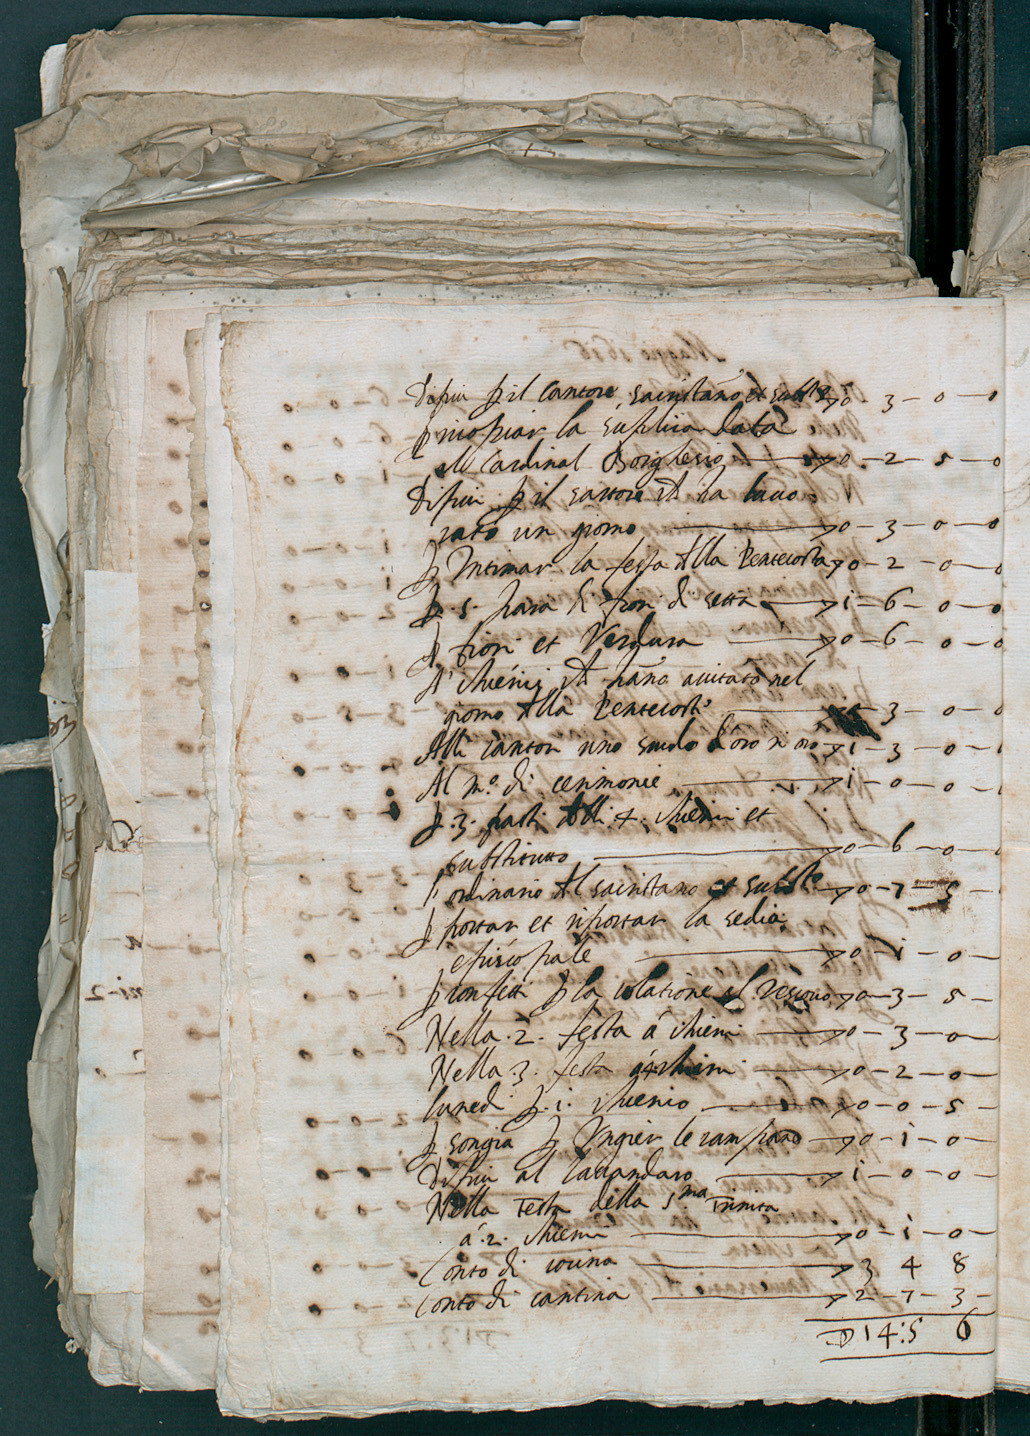 Di piu p il Cantore, sacristano et subst.to 0 - 3 - 0 - 0
p ricopiar la suplica data
al Cardinal Borghesio 0 - 2 - 5 - 0
Di piu p il sartore ch ha lauo
rato un giorno 0 - 3 - 0 - 0
p Intimar la festa della Pentecoste 0 - 2 - 0 - 0
p .5. para di fiori di setta 1 - 6 - 0 - 0
p fiori et Verdura 0 - 6 0 - 0
A' chierici ch hano aiutato nel
giorno della Pentecoste 3 - 0 - 0
Alli cantori uno scudo d'oro in oro 1 - 3 - 0 -
Al m.o di cerimonie 1 - 0 - 0 -
p .3. pasti alli .4. chierici et
substituto 0 - 6 - 0 - 0
p ordinario al sacristano et subst.to 0 - 7 - 5 -
p portar et riportar la sedia
episcopale 0 - 1 - 0 -
p confetti p la colatione al Vescouo 0 - 3 - 5 -
Nella .2. festa á chierici 0 - 3 - 0
Nella 3. festa á chierici 0 - 2 - 0 -
lunedi p .1. chierico 0 - 0 - 5 -
p songia p Ungier le campane 0 - 1 - 0 -
Di piu al lauandaro 1 - 0 - 0
Nella Festa della S.ma Trinita
á .2. chierici 0 - 1 - 0 -
Conto di cocina 3 4 8
Conto di cantina 2 - 7 - 3 -
D 14 : 5 6